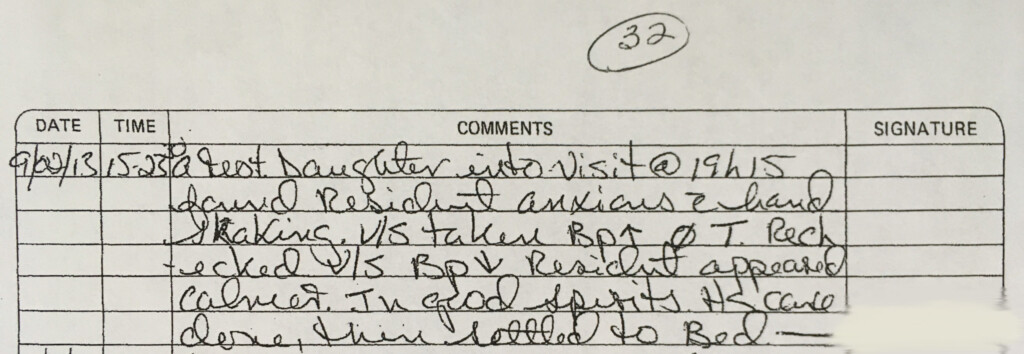 32
DATE TIME COMMENTS SIGNATURE
9/02/13 15-23° Daughter into Visit @ 19h15
found Resident anxious c̄ hand
shaking. V/S taken Bp↑ Ø T. Rech
-ecked V/S Bp↓ Resident appeared
calmer. In good spirits. HS care
done, then settled to Bed —